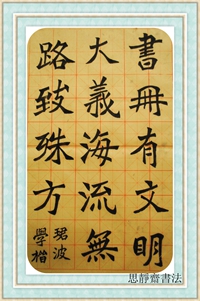 書冊有文明
大義海流無
路致殊方
珺波
學楷
思靜齋書法